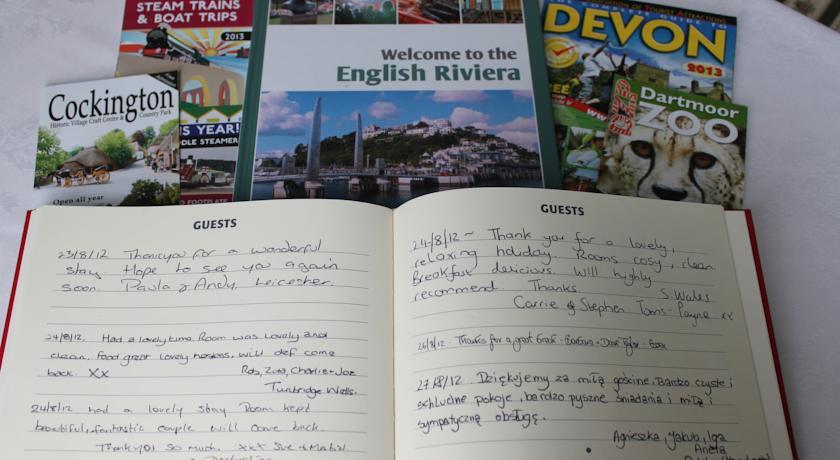 STEAM TRAINS
& BOAT TRIPS
2013
IS YEAR!
DLE STEAMER
Cockington
Historic Village Craft Centre & Country Park
Open all year
Welcome to the
English Riviera
THE COMPLETE GUIDE TO
DEVON
2013
Dartmoor
ZOO
GUESTS
23/8/12 Thankyou for a wonderful
stay. Hope to see you again
soon. Paula & Andy, Leicester.
24/8/12. Had a lovely time. Room was lovely and
clean. Food great lovely, will def come
back. XX Rob, Charlie + Joe
Tunbridge Wells.
24/8/12 had a lovely stay Room kept
beautiful, fantastic couple will come back.
Thankyou so much. xxx Sue +
GUESTS
24/8/12 ~ Thank you for a lovely,
relaxing holiday. Rooms cosy, clean
Breakfast delicious. Will highly
recommend. Thanks. S. Wales
Carrie & Stephen Toms-Payne xx
26/8/12 - Thanks for a great break - Barbara + Dave Taylor - Essex
27/8/12. Dziękujemy za miłą gościne. Bardzo czyste i
schludne pokoje, bardzo pyszne śniadania i miła i
sympatyczną obsługę.
Agnieszka, Jakub, Iga
Aneta